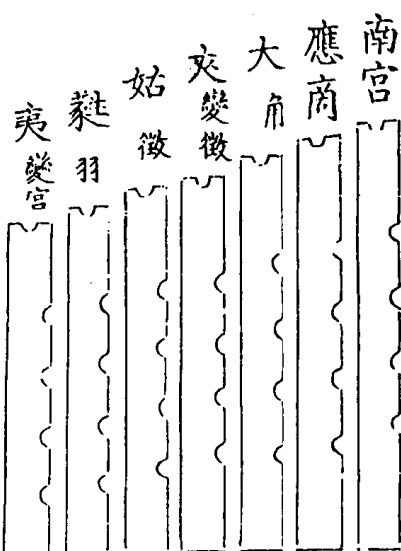 南宮
應商
大角
夾變徵
姑徵
蕤羽
夷變宮